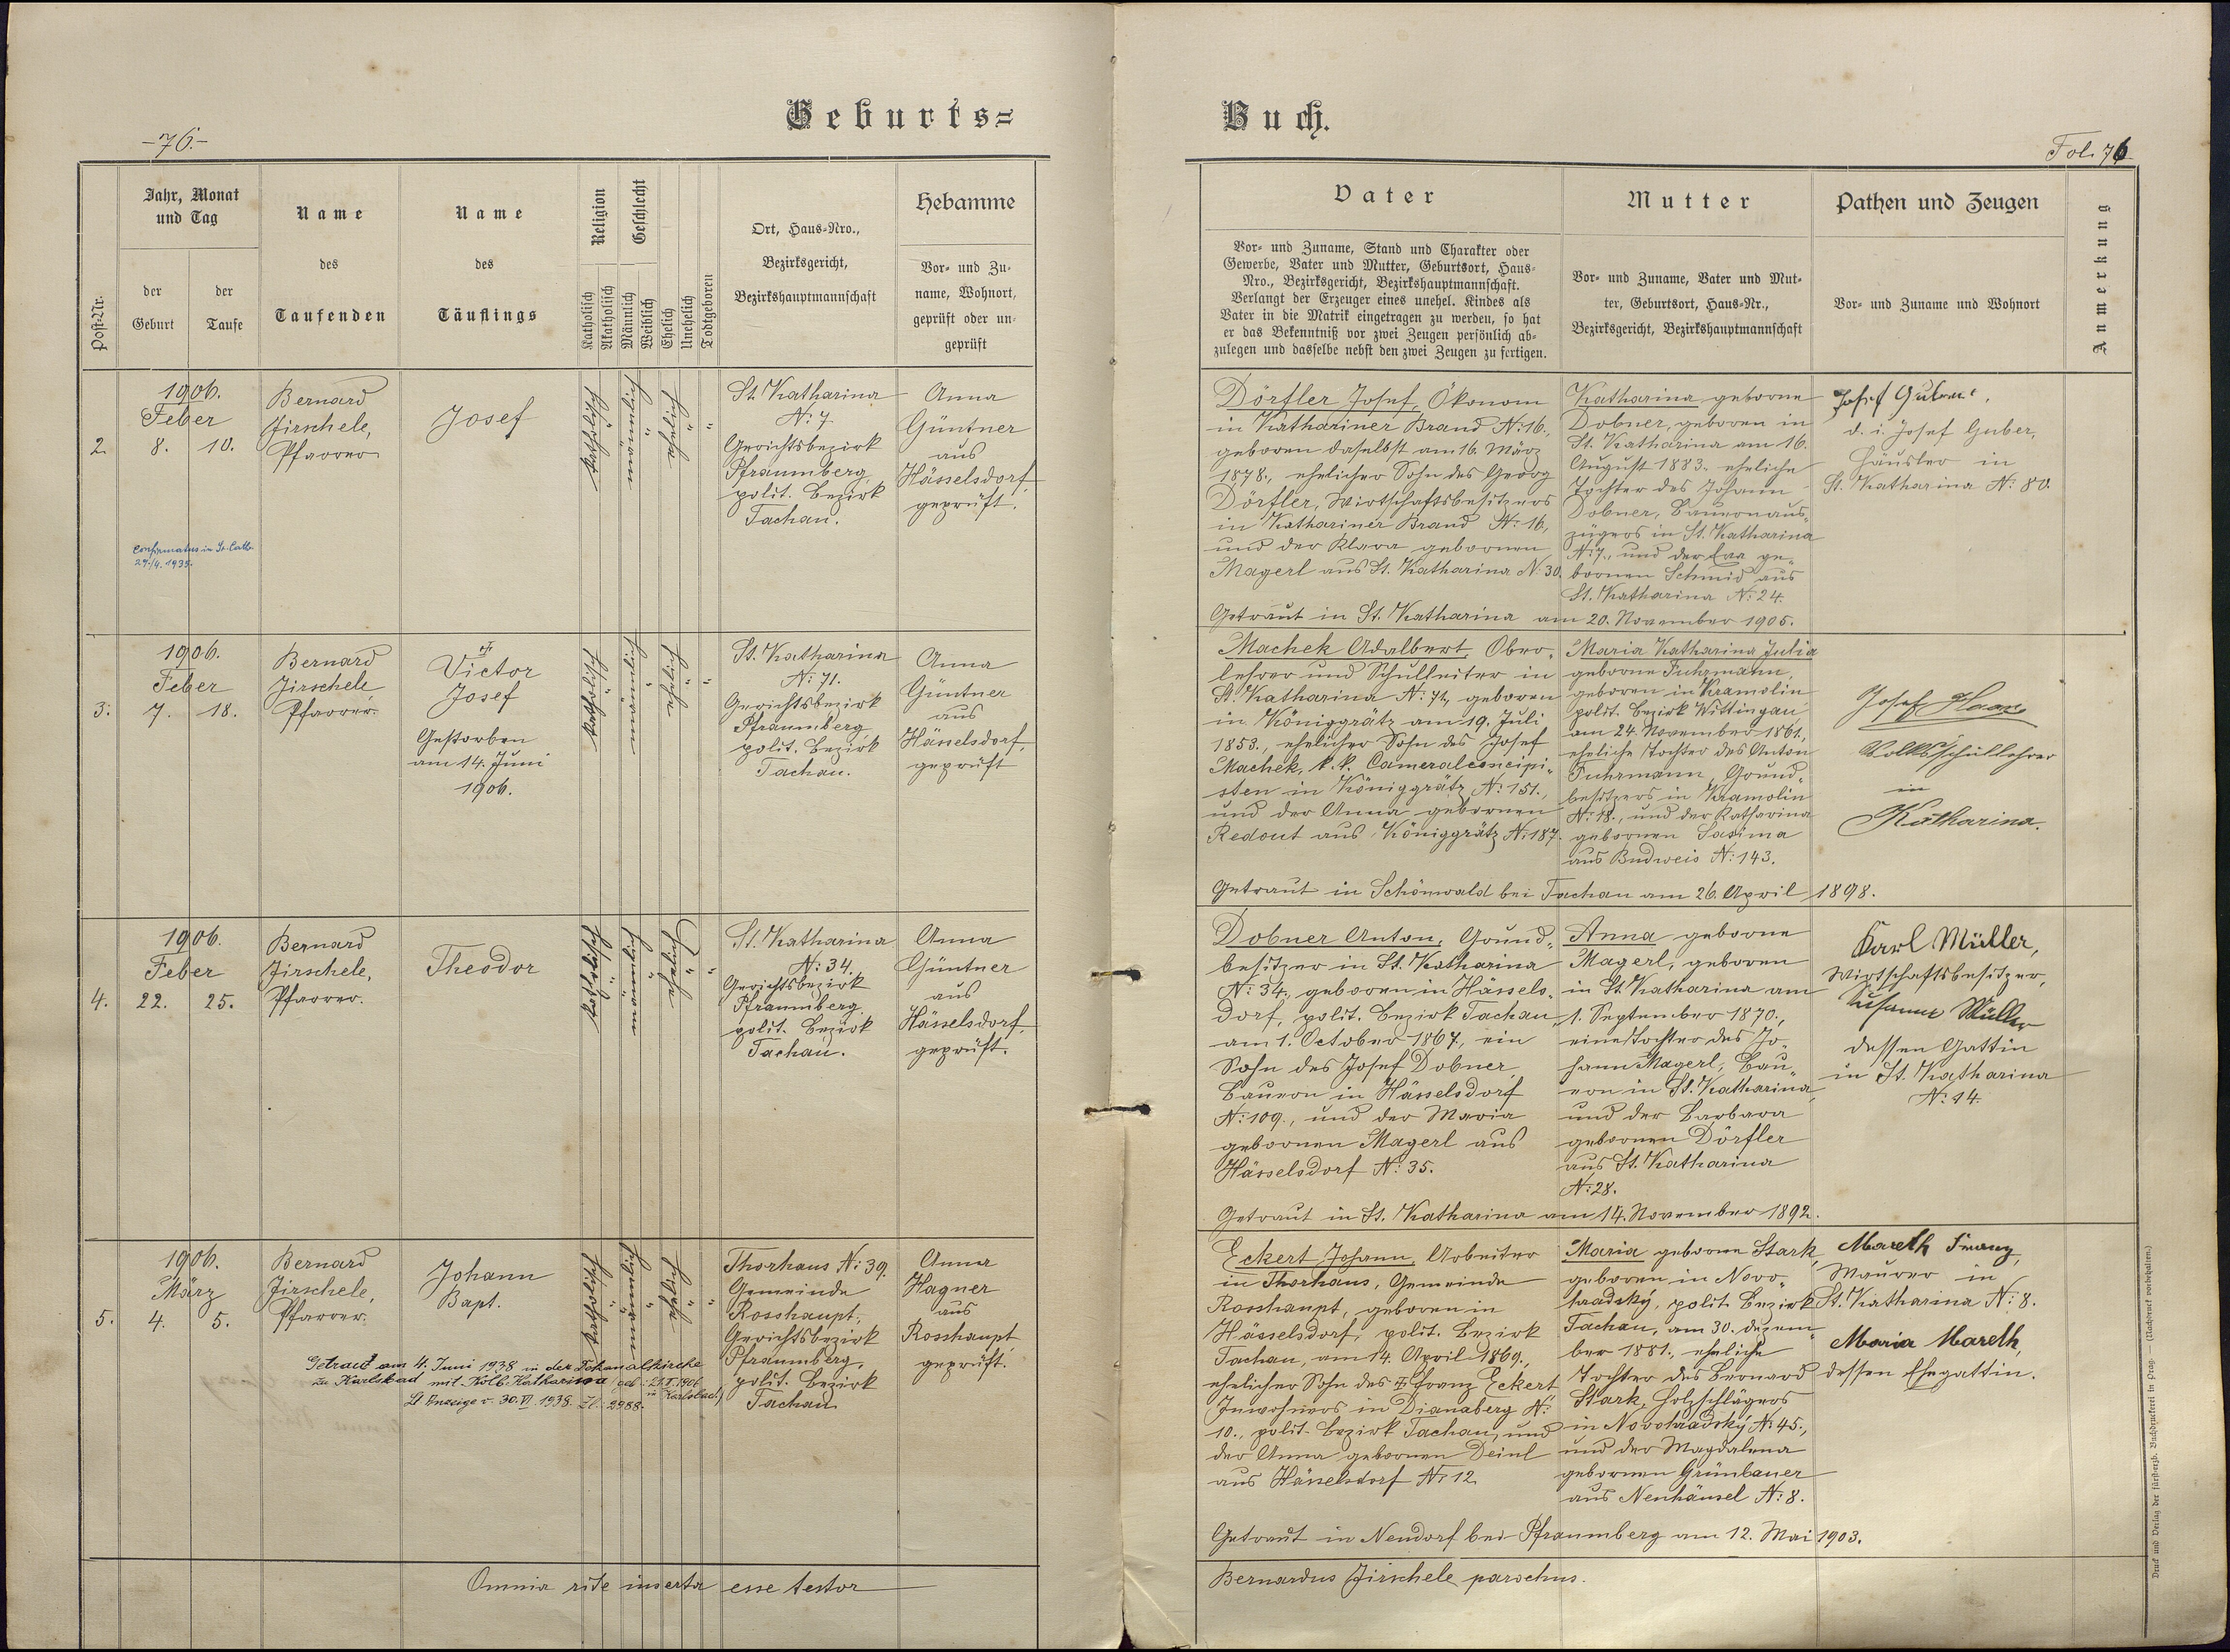 Geburts=
-76.-
Post-Nr.
Jahr, Monat
und Tag
der
Geburt
der
Taufe
Name
des
Taufenden
Name
des
Täuflings
Religion
Katholisch
Akatholisch
Geschlecht
Männlich
Weiblich
Ehelich
Unehelich
Todtgeboren
Ort, Haus-Nro.,
Bezirksgericht,
Bezirkshauptmannschaft
Hebamme
Vor- und Zu-
name, Wohnort,
geprüft oder un-
geprüft
2.
1906.
Feber
8. 10.
Bernard
Jirschele,
Pfarrer
Josef
katholisch
männlich
ehelich
St. Katharina
N: 7
Gerichtsbezirk
Pfraumberg,
polit. Bezirk
Tachau.
Anna
Güntner
aus
Hässelsdorf,
geprüft.
confirmatus in St. Cath.
27./4. 1935.
3.
1906.
Feber
7. 18.
Bernard
Jirschele
Pfarrer.
Victor
Josef
Gestorben
am 14. Juni
1906.
katholisch
männlich
ehelich
St. Katharina
N: 71.
Gerichtsbezirk
Pfraumberg
polit. Bezirk
Tachau.
Anna
Güntner
aus
Hässelsdorf,
geprüft
4.
1906.
Feber
22. 25.
Bernard
Jirschele,
Pfarrer.
Theodor
katholisch
männlich
Ehelich
St. Katharina
N: 34.
Gerichtsbezirk
Pfraumberg.
polit. Bezirk
Tachau.
Anna
Güntner
aus
Hässelsdorf,
geprüft.
5.
1906.
März
4. 5.
Bernard
Jirschele,
Pfarrer.
Johann
Bapt.
katholisch
männlich
ehelich
Thorhaus N: 39.
Gemeinde
Rosshaupt,
Gerichtsbezirk
Pfraumberg,
polit. Bezirk
Tachau
Anna
Hagner
aus
Rosshaupt,
geprüft.
Getraut am 4. Juni 1938 in der Dekanalkirche
zu Karlsbad mit Kolb Katharina
in Karlsbad)
Lt. Anzeige v. 30. VI. 1938. Zl. 2988.
Omnia rite inserta esse testor
Buch.
Fol. 76
Vater
Vor- und Zuname, Stand und Charakter oder
Gewerbe, Vater und Mutter, Geburtsort, Haus-
Nro., Bezirksgericht, Bezirkshauptmannschaft.
Verlangt der Erzeuger eines unehel. Kindes als
Vater in die Matrik eingetragen zu werden, so hat
er das Bekenntniß vor zwei Zeugen persönlich ab-
zulegen und dasselbe nebst den zwei Zeugen zu fertigen.
Mutter
Vor- und Zuname, Vater und Mut-
ter, Geburtsort, Haus-Nr.,
Bezirksgericht, Bezirkshauptmannschaft
Pathen und Zeugen
Vor- und Zuname und Wohnort
Anmerkung
Dörfler Josef, Ökonom
in Kathariner Brand N: 16.,
geboren daselbst am 16. März
1878., ehelicher Sohn des Georg
Dörfler, Wirtschaftsbesitzers
in Kathariner Brand N: 16,
und der Klara gebornen
Magerl aus St. Katharina N: 30.
Katharina geborne
Dobner, geboren in
St. Katharina am 16.
August 1883. eheliche
Tochter des Johann
Dobner, Bauernaus-
zügers in St. Katharina
N: 7., und der Eva ge-
bornen Schmid aus
St. Katharina N: 24.
Josef Guber,
d. i. Josef Guber,
Häusler in
St. Katharina N: 80.
Getraut in St. Katharina am 20. November 1905.
Machek Adalbert, Ober-
lehrer und Schulleiter in
St. Katharina N: 71, geboren
in Königgrätz am 19. Juli
1853., ehelicher Sohn des Josef
Machek, k. k. Cameralconcipi-
sten in Königgrätz N: 151.,
und der Anna gebornen
Redout aus Königgrätz N: 187.
Maria Katharina Julia
geborne Fuhrmann,
geboren in Kramolin
polit. Bezirk Wittingau
am 24. November 1861.,
eheliche Tochter des Anton
Fuhrmann, Grund-
besitzers in Kramolin
N: 18., und der Katharina
gebornen
aus Budweis N: 143.
Josef Haas
Volksschullehrer
in
Katharina.
Getraut in Schönwald bei Tachau am 26. April 1898.
Dobner Anton, Grund-
besitzer in St. Katharina
N: 34., geboren in Hässels-
dorf, polit. Bezirk Tachau,
am 1. October 1867., ein
Sohn des Josef Dobner
Bauern in Hässelsdorf
N: 109., und der Maria
gebornen Magerl aus
Hässelsdorf N: 35.
Anna geborne
Magerl, geboren
in St. Katharina am
1. September 1870.,
eine Tochter des Jo-
hann Magerl, Bau-
ern in St. Katharina,
und der Barbara
gebornen Dörfler
aus St. Katharina
N: 28.
Karl Müller,
Wirtschaftsbesitzer,
Susanne Müller
dessen Gattin
in St. Katharina
N: 14.
Getraut in St. Katharina am 14. November 1892.
Eckert Johann, Arbeiter
in Thorhaus, Gemeinde
Rosshaupt, geboren in
Hässelsdorf, polit. Bezirk
Tachau, am 14. April 1869.,
ehelicher Sohn des Franz Eckert
Inwohners in Dianaberg N:
10., polit. Bezirk Tachau, und
der Anna gebornen Deinl
aus Hässelsdorf N: 12
Maria geborne Stark,
geboren in Novo-
hradský, polit. Bezirk
Tachau, am 30. Dezem-
ber 1881., eheliche
Tochter des Bernard
Stark, Holzschlägers
in Novohradský N: 45.,
und der Magdalena
gebornen Grünbauer
aus Neuhäusel N: 8.
Mareth Franz,
Maurer in
St. Katharina N: 8.
Maria Mareth,
dessen Ehegattin.
Getraut in Neudorf bei Pfraumberg am 12. Mai 1903.
Bernardus Jirschele parochus.
Druck und Verlag der fürsterzb. Buchdruckerei in Prag. — (Nachdruck vorbehalten.)